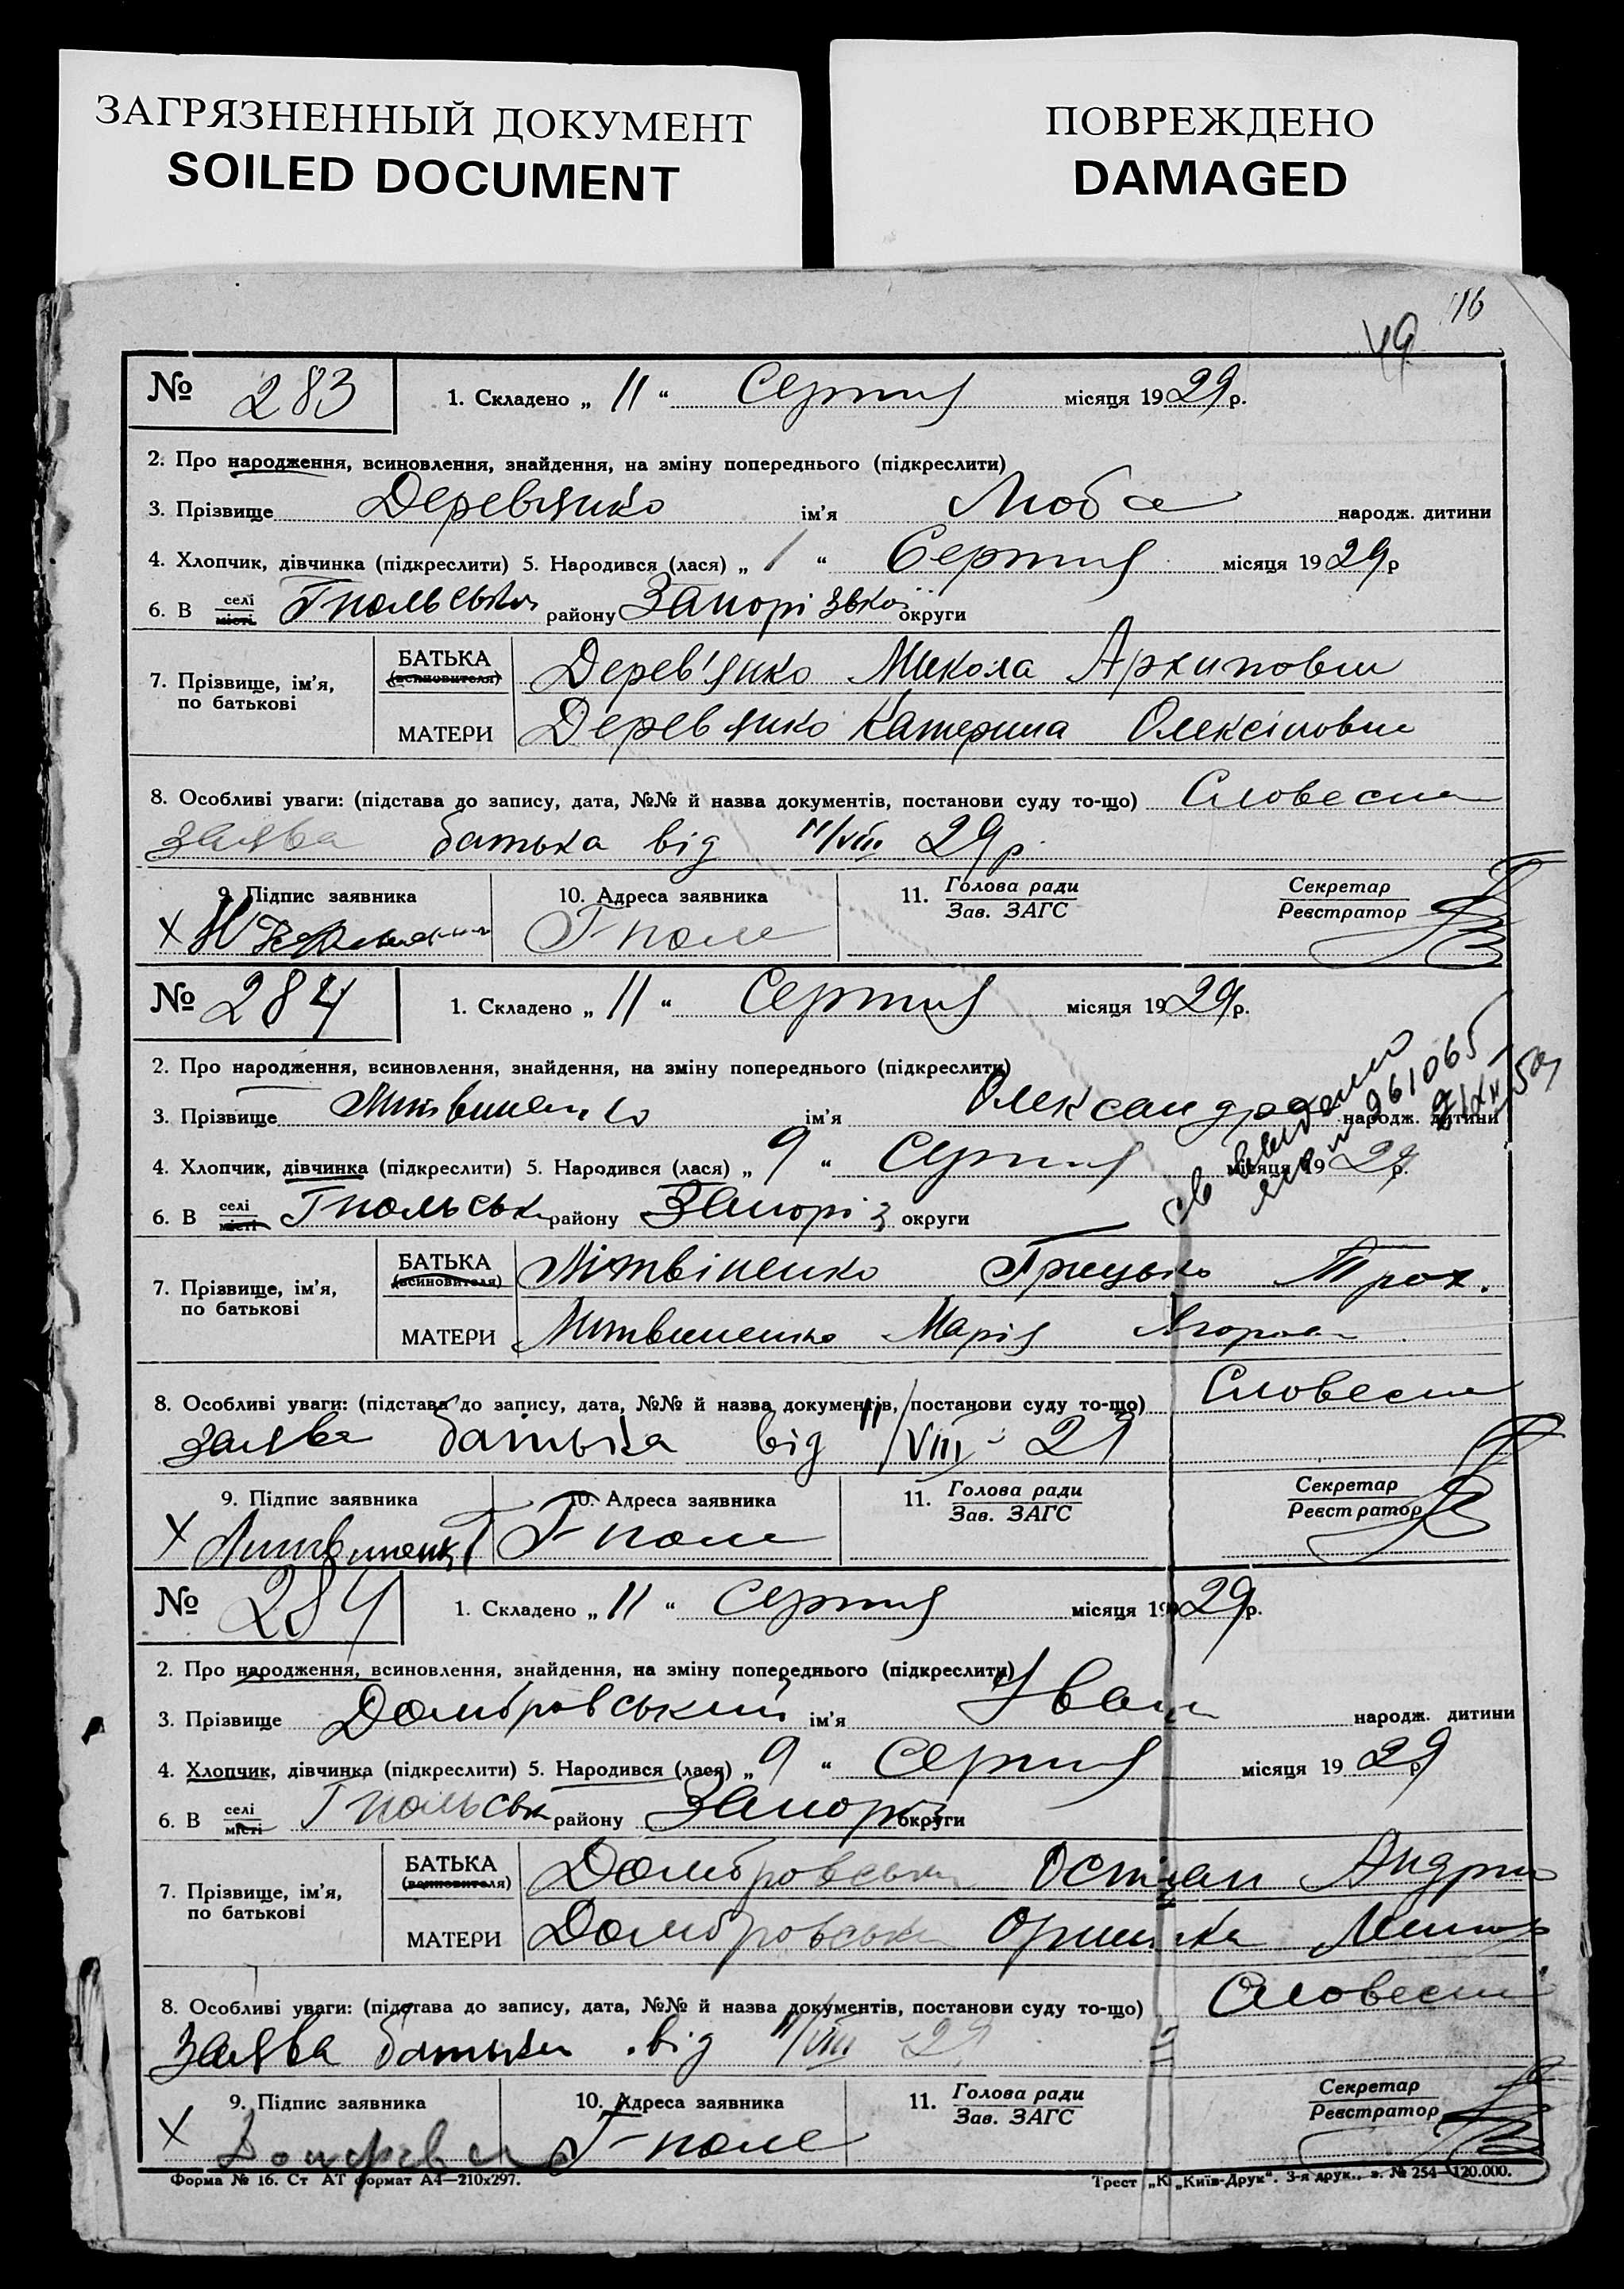 ЗАГРЯЗНЕННЫЙ ДОКУМЕНТ
SOILED DOCUMENT
ПОВРЕЖДЕНО
DAMAGED
116
49
№ 283 1. Складено „ 11 “ Серпня місяця 1929 р.
2. Про народження, всиновлення, знайдення, на зміну попереднього (підкреслити)
3. Прізвище Деревянко ім'я Люба народж. дитини
4. Хлопчик, дівчинка (підкреслити) 5. Народився (лася) „ 1 “ Серпня місяця 1929 р
6. В селі місті Гпольськ району Запорізької округи
7. Прізвище, ім'я, по батькові
БАТЬКА (всиновителя) Дерев'янко Микола Архипович
МАТЕРИ Деревянко Катерина Олексіновна
8. Особливі уваги: (підстава до запису, дата, №№ й назва документів, постанови суду то-що) Словесна
заява батька від 11/VIII 29 р.
9. Підпис заявника 10. Адреса заявника 11. Голова ради Зав. ЗАГС Секретар Реєстратор
X Г-поле
№ 284 1. Складено „ 11 “ Серпня місяця 1929 р.
2. Про народження, всиновлення, знайдення, на зміну попереднього (підкреслити)
3. Прізвище Литвиненко ім'я Олександра народж. дитини
4. Хлопчик, дівчинка (підкреслити) 5. Народився (лася) „ 9 “ Серпня місяця 1929 р.
6. В селі місті Гпольськ району Запоріз округи
961065
7. Прізвище, ім'я, по батькові
БАТЬКА (всиновителя) Літвіненко Грицько Трох.
МАТЕРИ Литвиненко Марія
8. Особливі уваги: (підстава до запису, дата, №№ й назва документів, постанови суду то-що) Словесна
заява батька від 11/VIII 29
9. Підпис заявника 10. Адреса заявника 11. Голова ради Зав. ЗАГС Секретар Реєстратор
X Литвиненко Г-поле
№ 284 1. Складено „ 11 “ Серпня місяця 1929 р.
2. Про народження, всиновлення, знайдення, на зміну попереднього (підкреслити)
3. Прізвище Домбровський ім'я Іван народж. дитини
4. Хлопчик, дівчинка (підкреслити) 5. Народився (лася) „ 9 “ Серпня місяця 1929 р
6. В селі місті Гпольськ району Запоріз округи
7. Прізвище, ім'я, по батькові
БАТЬКА (всиновителя) Домбровськи Остап Андри
МАТЕРИ Домбровська Оришка
8. Особливі уваги: (підстава до запису, дата, №№ й назва документів, постанови суду то-що) Словесна
заява батька від 11/VIII 29
9. Підпис заявника 10. Адреса заявника 11. Голова ради Зав. ЗАГС Секретар Реєстратор
X Г-поле
Форма № 16. Ст АТ формат А4—210х297.
Трест „К „Київ-Друк“. 3-я друк., з. № 254—120.000.